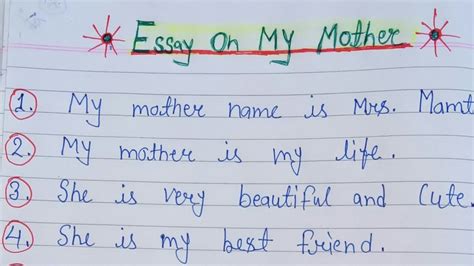 Essay On My Mother
1. My mother name is Mrs. Mamt
2. My mother is my life.
3. She is very beautiful and Cute.
4. She is my best friend.